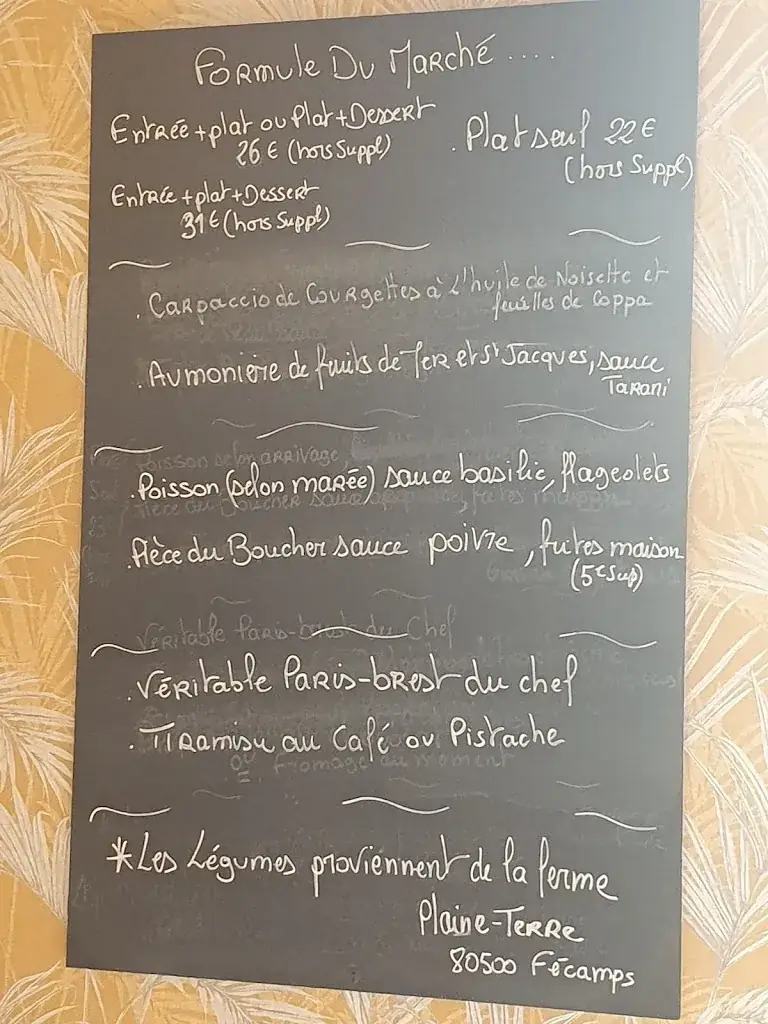 Formule Du Marché ....
Entrée + plat ou Plat + Dessert
26 € (hors Suppl)
. Plat seul 22 €
(hors Suppl)
Entrée + plat + Dessert
31 € (hors Suppl)
. Carpaccio de Courgettes à L'huile de Noisette et
feuilles de Coppa
. Aumonière de fruits de Mer et St Jacques, sauce
Tarani
. Poisson (selon marée) sauce basilic, flageolets
. Pièce du Boucher sauce poivre, frites maison
(5€ Sup)
. Véritable Paris-brest du chef
. Tiramisu au Café ou Pistache
ou fromage du moment
* Les Légumes proviennent de la ferme
Plaine-Terre
80500 Fécamps